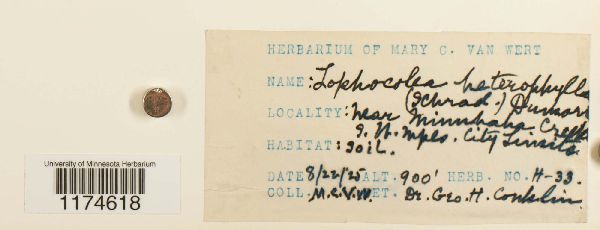 HERBARIUM OF MARY C. VAN WERT
NAME: Lophocolea heterophylla
(Schrad.) Dumort
LOCALITY: near Minnehaha Creek
Mpls. City Limits
HABITAT: soil.
DATE 8/22/25 ALT. 900' HERB. NO. H-33.
COLL. M.C.V.W. DET. Dr. Geo. H. Conklin
University of Minnesota Herbarium
1174618